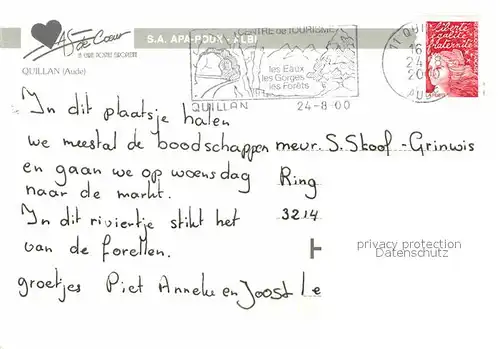 AS de Cœur
LA CARTE POSTALE EUROPEENNE
S.A. APA-POUX - ALBI
QUILLAN (Aude)
CENTRE de TOURISME
les Eaux
les Gorges
les Forêts
QUILLAN 24-8-00
11 QUILLAN
16
24-8
2000
AUDE
Liberté
égalité
fraternité
In dit plaatsje halen
we meestal de boodschappen
en gaan we op woensdag
naar de markt.
In dit riviertje stikt het
van de forellen.
groetjes Piet Anneke en Joost
meur. S. Stoof-Grinwis
Ring
3214
privacy protection
Datenschutz